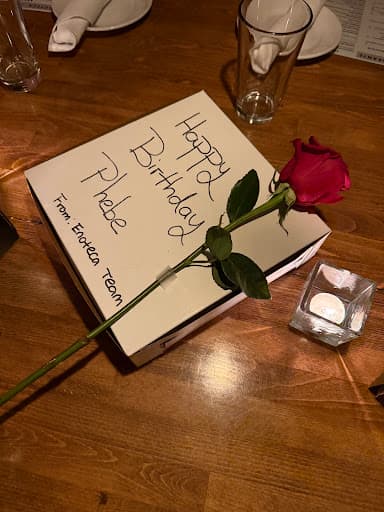 Happy
Birthday
Phebe
From. Enoteca Team